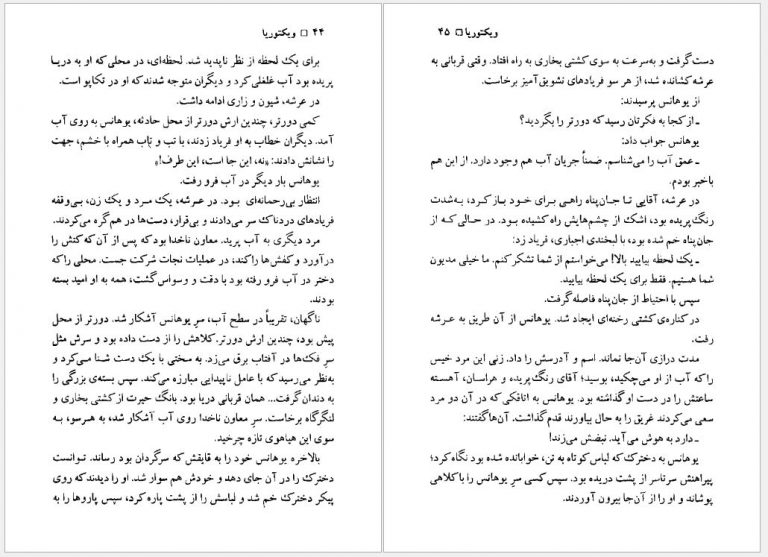 ۴۴ □ ویکتوریا
برای یک لحظه از نظر ناپدید شد. لحظه‌ای، در محلی که او به دریا
پریده بود آب غلغلی کرد و دیگران متوجه شدند که او در تکاپو است.
در عرشه، شیون و زاری ادامه داشت.
کمی دورتر، چندین ارش دورتر از محل حادثه، یوهانس به روی آب
آمد. دیگران خطاب به او فریاد زدند، با تب و تاب همراه با خشم، جهت
را نشانش دادند: «نه، این جا است، این طرف!»
یوهانس بار دیگر در آب فرو رفت.
انتظار بی‌رحمانه‌ای بود. در عرشه، یک مرد و یک زن، بی‌وقفه
فریادهای دردناک سر می‌دادند و بی‌قرار، دست‌ها در هم گره می‌کردند.
مرد دیگری به آب پرید. معاون ناخدا بود که پس از آن که کتش را
درآورد و کفش‌ها را کند، در عملیات نجات شرکت جست. محلی را که
دختر در آب فرو رفته بود با دقت و وسواس گشت، همه به او امید بسته
بودند.
ناگهان، تقریباً در سطح آب، سرِ یوهانس آشکار شد. دورتر از محل
پیش بود، چندین ارش دورتر. کلاهش را از دست داده بود و سرش مثل
سر فک‌ها در آفتاب برق می‌زد. به سختی با یک دست شنا می‌کرد و
به‌نظر می‌رسید که با عامل ناپیدایی مبارزه می‌کند. سپس بسته‌ی بزرگی را
به دندان گرفت... همان قربانی دریا بود. بانگ حیرت از کشتی بخاری و
لنگرگاه برخاست. سرِ معاون ناخدا روی آب آشکار شد، به هر سو، به
سوی این هیاهوی تازه چرخید.
بالاخره یوهانس خود را به قایقش که سرگردان بود رساند. توانست
دخترک را در آن جای دهد و خودش هم سوار شد. او را دیدند که روی
پیکر دخترک خم شد و لباسش را از پشت پاره کرد، سپس پاروها را به
ویکتوریا □ ۴۵
دست گرفت و به‌سرعت به سوی کشتی بخاری به راه افتاد. وقتی قربانی به
عرشه کشانده شد، از هر سو فریادهای تشویق‌آمیز برخاست.
از یوهانس پرسیدند:
ـ از کجا به فکرتان رسید که دورتر را بگردید؟
یوهانس جواب داد:
ـ عمق آب را می‌شناسم. ضمناً جریان آب هم وجود دارد. از این هم
باخبر بودم.
در عرشه، آقایی تا جان‌پناه راهی برای خود باز کرد، به‌شدت
رنگ پریده بود، اشک از چشم‌هایش راه کشیده بود. در حالی که از
جان‌پناه خم شده بود، با لبخندی اجباری، فریاد زد:
ـ یک لحظه بیایید بالا! می‌خواستم از شما تشکر کنم. ما خیلی مدیون
شما هستیم. فقط برای یک لحظه بیایید.
سپس با احتیاط از جان‌پناه فاصله گرفت.
در کناره‌ی کشتی رخنه‌ای ایجاد شد. یوهانس از آن طریق به عرشه
رفت.
مدت درازی آن‌جا نماند. اسم و آدرسش را داد. زنی این مرد خیس
را که آب از او می‌چکید، بوسید؛ آقای رنگ‌پریده و هراسان، آهسته
ساعتش را در دست او گذاشته بود. یوهانس به اتاقکی که در آن دو مرد
سعی می‌کردند غریق را به حال بیاورند قدم گذاشت. آن‌ها گفتند:
ـ دارد به هوش می‌آید. نبضش می‌زند!
یوهانس به دخترک که لباس کوتاه به تن، خوابانده شده بود نگاه کرد؛
پیراهنش سرتاسر از پشت دریده بود. سپس کسی سرِ یوهانس را با کلاهی
پوشاند و او را از آن‌جا بیرون آوردند.